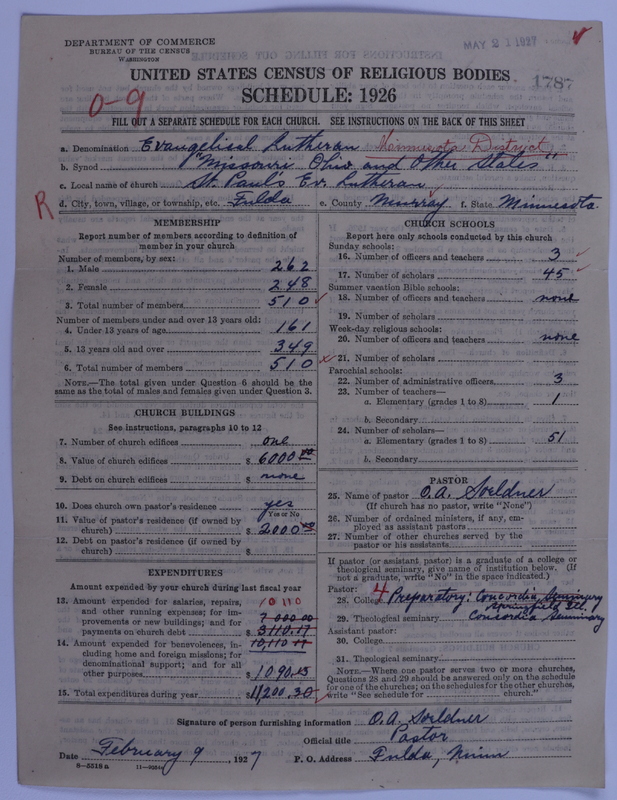 DEPARTMENT OF COMMERCE
BUREAU OF THE CENSUS
WASHINGTON
MAY 21 1927
UNITED STATES CENSUS OF RELIGIOUS BODIES
1787
SCHEDULE: 1926
0-9
FILL OUT A SEPARATE SCHEDULE FOR EACH CHURCH. SEE INSTRUCTIONS ON THE BACK OF THIS SHEET
a. Denomination Evangelical Lutheran Minnesota District
b. Synod "Missouri, Ohio and Other States"
c. Local name of church St. Paul's Ev. Lutheran
R d. City, town, village, or township, etc. Fulda e. County Murray f. State Minnesota
MEMBERSHIP
Report number of members according to definition of
member in your church
Number of members, by sex:
1. Male 262
2. Female 248
3. Total number of members 510
Number of members under and over 13 years old:
4. Under 13 years of age 161
5. 13 years old and over 349
6. Total number of members 510
NOTE.—The total given under Question 6 should be the
same as the total of males and females given under Question 3.
CHURCH BUILDINGS
See instructions, paragraphs 10 to 12
7. Number of church edifices one
8. Value of church edifices $ 6000 00
9. Debt on church edifices $ none
10. Does church own pastor's residence yes
Yes or No
11. Value of pastor's residence (if owned by
church) $ 2000 00
12. Debt on pastor's residence (if owned by
church) $
EXPENDITURES
Amount expended by your church during last fiscal year
13. Amount expended for salaries, repairs, 10 110
and other running expenses; for im-
provements or new buildings; and for 7 000 00
payments on church debt $ 3110.17
14. Amount expended for benevolences, in- 10,110 17
cluding home and foreign missions; for
denominational support; and for all
other purposes $ 1090.13
15. Total expenditures during year $ 11,200.30
CHURCH SCHOOLS
Report here only schools conducted by this church
Sunday schools:
16. Number of officers and teachers 3
17. Number of scholars 45
Summer vacation Bible schools:
18. Number of officers and teachers none
19. Number of scholars
Week-day religious schools:
20. Number of officers and teachers none
21. Number of scholars
Parochial schools:
22. Number of administrative officers 3
23. Number of teachers—
a. Elementary (grades 1 to 8) 1
b. Secondary
24. Number of scholars—
a. Elementary (grades 1 to 8) 51
b. Secondary
PASTOR
25. Name of pastor O. A. Soeldner
(If church has no pastor, write "None")
26. Number of ordained ministers, if any, em-
ployed as assistant pastors
27. Number of other churches served by the
pastor or his assistants
If pastor (or assistant pastor) is a graduate of a college or
theological seminary, give name of institution below. (If
not a graduate, write "No" in the space indicated.)
Pastor: 4
28. College Preparatory: Concordia Seminary
Springfield Ill.
29. Theological seminary Concordia Seminary
Assistant pastor:
30. College
31. Theological seminary
NOTE.—Where one pastor serves two or more churches,
Questions 28 and 29 should be answered only on the schedule
for one of the churches; on the schedules for the other churches,
write "See schedule for church."
Signature of person furnishing information O. A. Soeldner
Official title Pastor
Date February 9, 1927 P. O. Address Fulda, Minn
8—5518 a